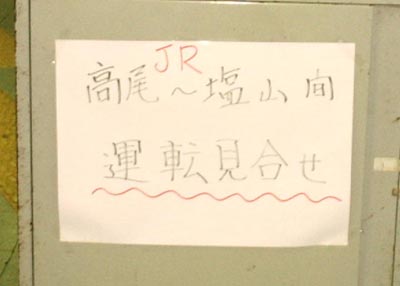 JR
高尾～塩山間
運転見合せ